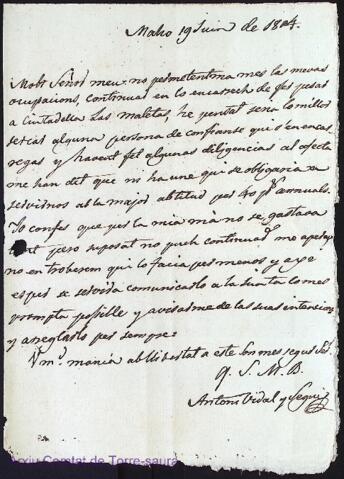 Maho 19 Juin de 1804.
Molt Señor meu: no permetentme mes las mevas
ocupacions, continuar en lo encarrech de fer pasar
a Ciutadella Las Maletas, he pensat sería lo millor
sercar alguna persona de confianse que s'en encar
regas y havent fet algunas diligencias al efecte
me han dit que ni ha une que se obligaria a
servirnos ab la major abtitud per 40 annuals.
Jo confes que per la mia mà no se gastava
tant pero suposat no puch continuar, me apar
no en troberem qui lo facia per menos y axe
esper se servirá comunicarlo a la Junta lo mes
prompta posible y avisarme de las suas intencions
y arreglarlo per sempre.
Vm. mania ab llibertat a este son mes segur
q. S. M. B.
Antoni Vidal y Segui
Arxiu Comtat de Torre-saura